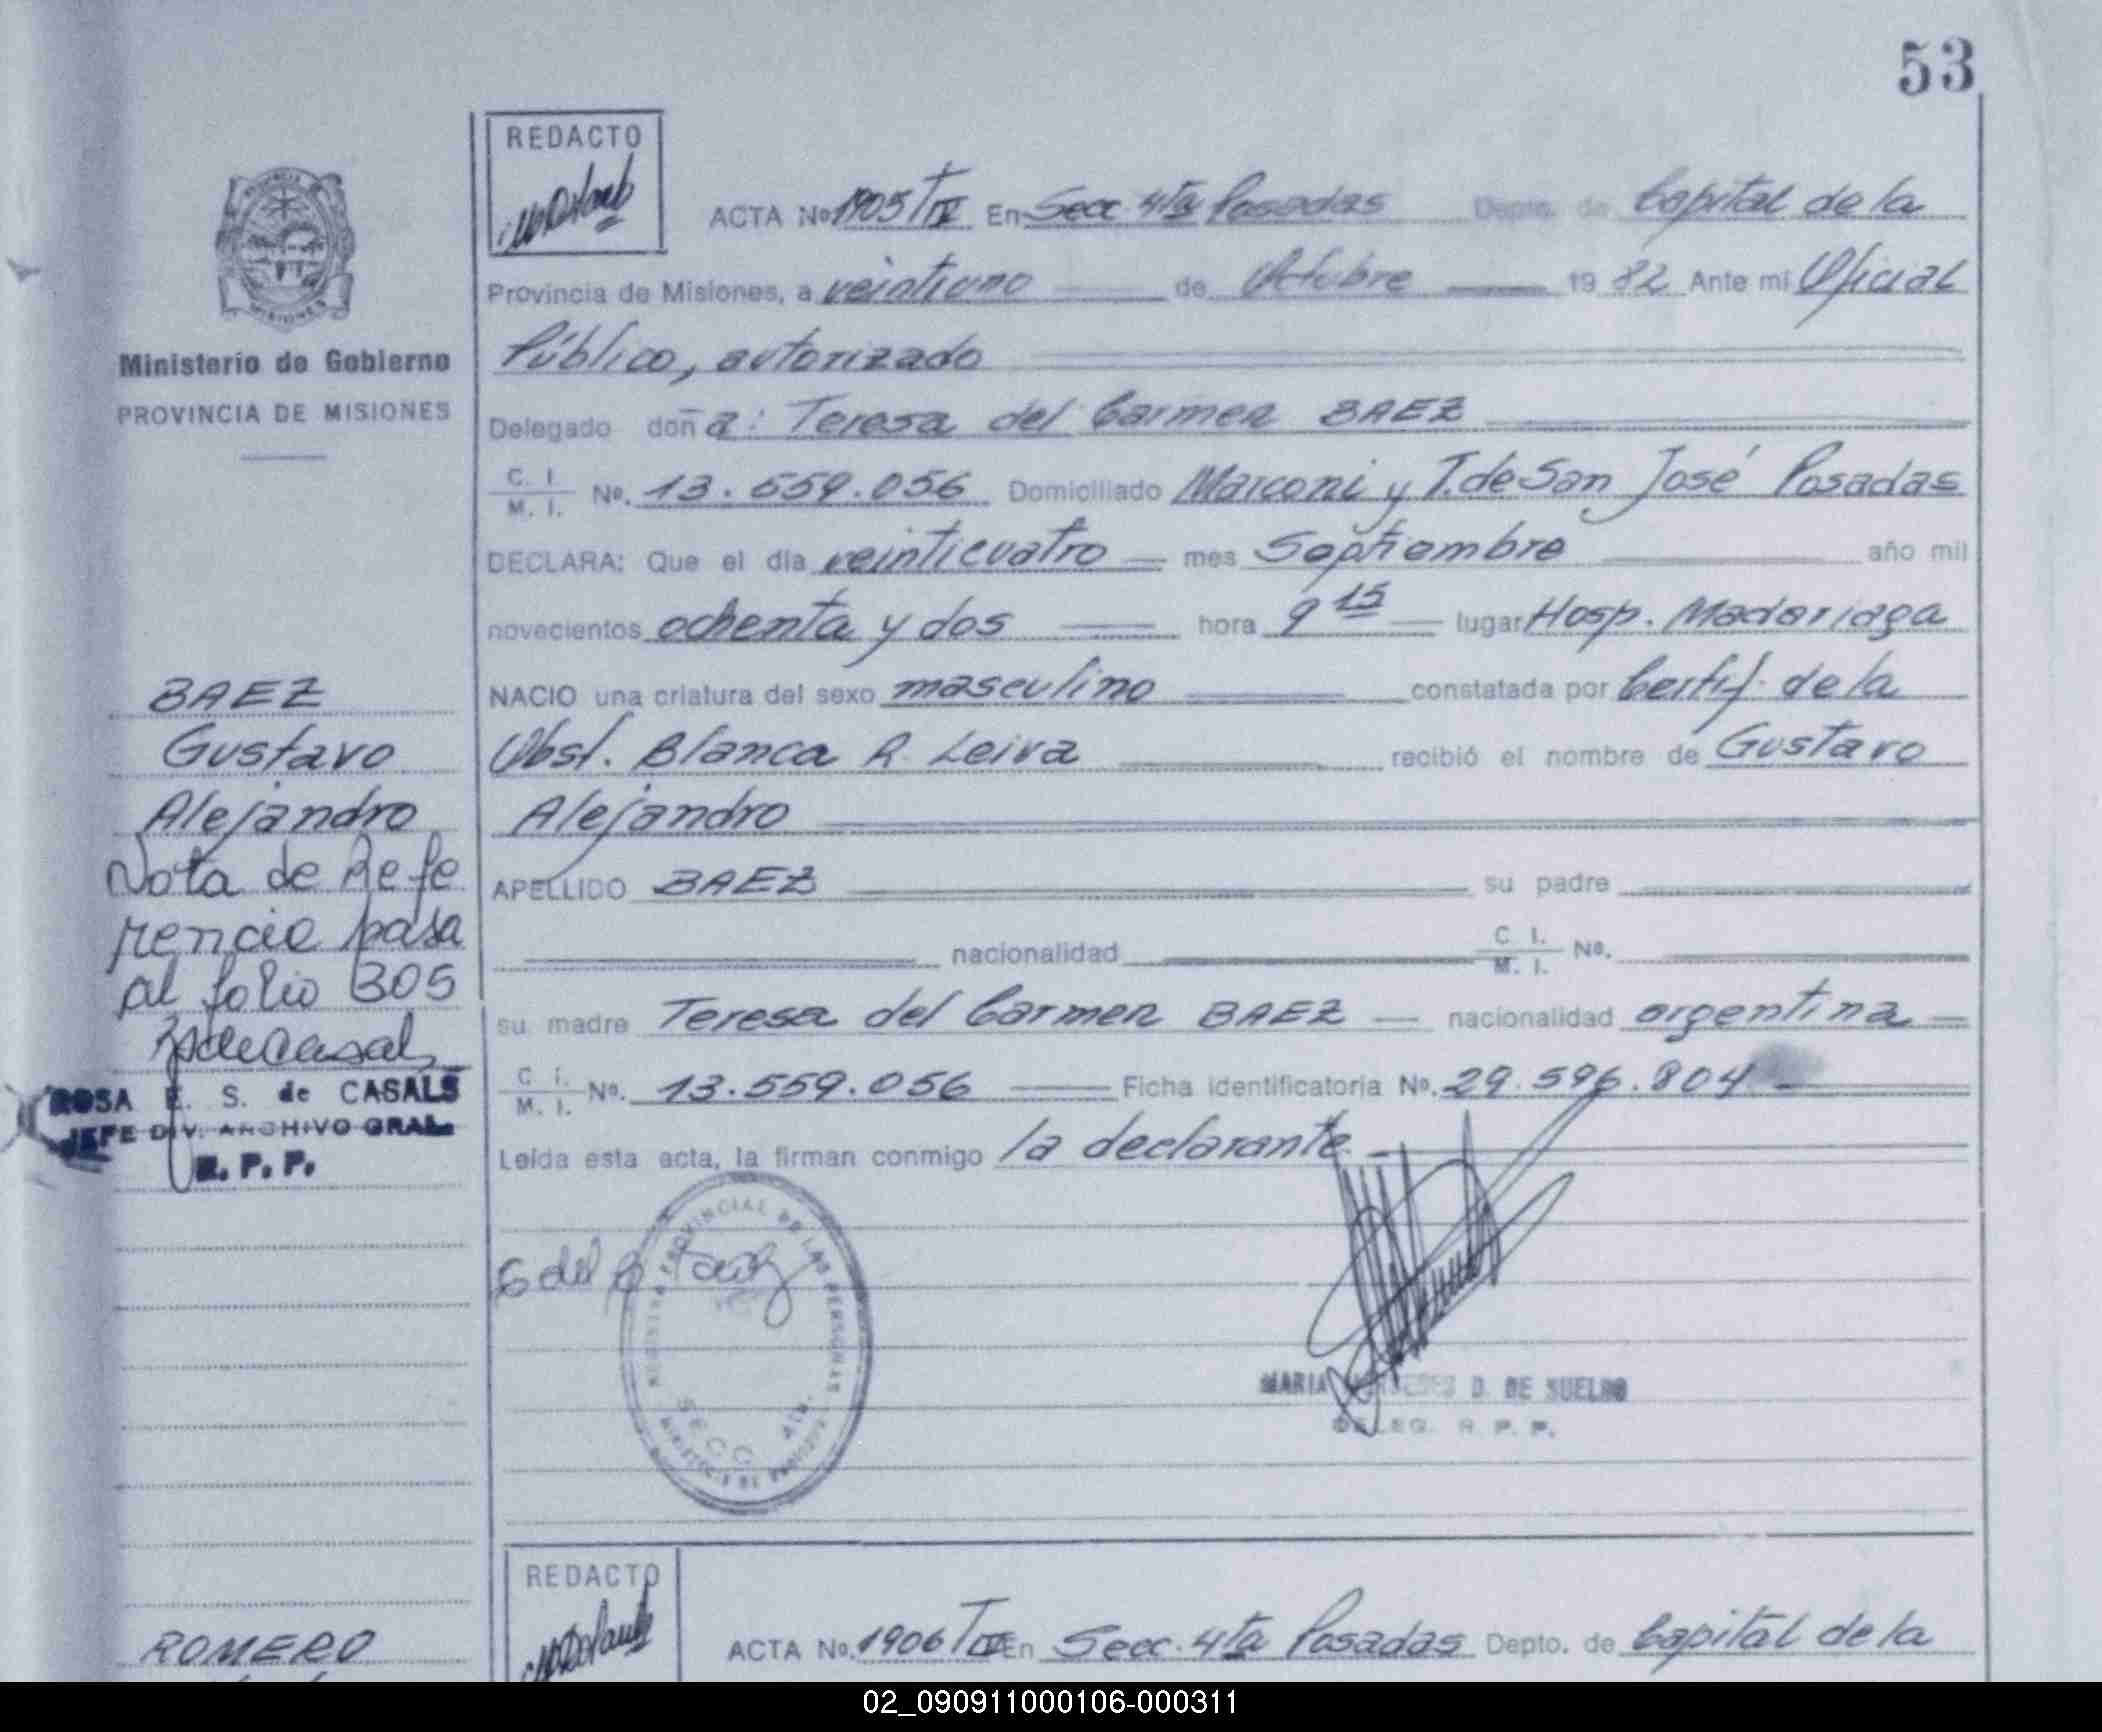 53
REDACTO
ACTA No 1905 T IV En Secc. 4ta Posadas Depto. de Capital de la
Provincia de Misiones, a veintiuno de Octubre 1982 Ante mi Oficial
Público, autorizado
Ministerio de Gobierno
PROVINCIA DE MISIONES
Delegado doña: Teresa del Carmen BAEZ
C. I. M. I. No. 13.559.056 Domiciliado Marconi y T. de San José Posadas
DECLARA: Que el día veinticuatro mes Septiembre año mil
novecientos ochenta y dos hora 9 15 lugar Hosp. Madariaga
NACIO una criatura del sexo masculino constatada por Certif. de la
Obst. Blanca R. Leiva recibió el nombre de Gustavo
Alejandro
APELLIDO BAEZ su padre
nacionalidad C. I. M. I. No.
su madre Teresa del Carmen BAEZ nacionalidad argentina
C. I. M. I. No. 13.559.056 Ficha identificatoria No. 29.596.804
Leída esta acta, la firman conmigo la declarante.
BAEZ
Gustavo
Alejandro
Nota de Refe
rencia pasa
al folio 305
ROSA E. S. de CASALS
JEFE DIV. ARCHIVO GRAL.
R. P. P.
REGISTRO PROVINCIAL DE LAS PERSONAS
SECC. 4ta.
MARIA MERCEDES D. DE SUELDO
DELEG. R. P. P.
REDACTO
ROMERO
ACTA No. 1906 T IV En Secc. 4ta Posadas Depto. de Capital de la
02_090911000106-000311